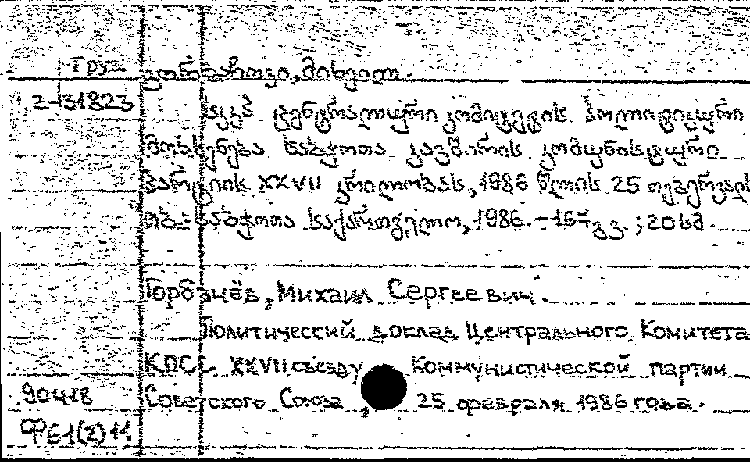 Груз
გორბაჩოვი, მიხეილ.
2-131823
სკკპ ცენტრალური კომიტეტის პოლიტიკური
მოხსენება საბჭოთა კავშირის კომუნისტური
პარტიის XXVII ყრილობას, 1986 წლის 25 თებერვალს
თბ.: საბჭოთა საქართველო, 1986. - 167 გვ.; 20სმ.
Горбачёв, Михаил Сергеевич.
Политический доклад Центрального Комитета
КПСС XXVII съезду Коммунистической партии
90418
Советского Союза, 25 февраля 1986 года.